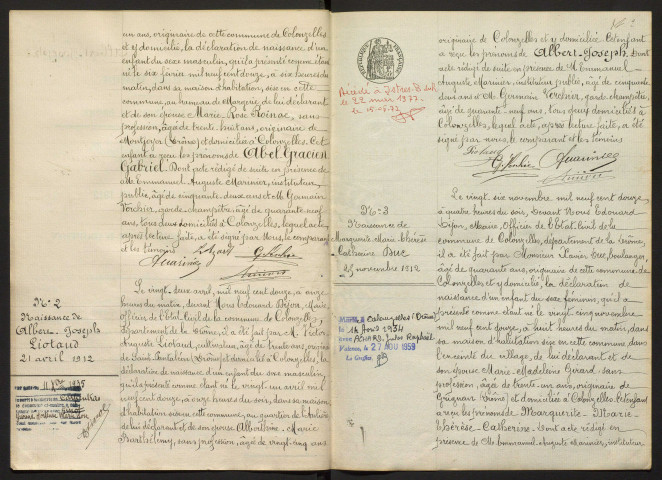 un ans, originaire de cette commune de Colonzelles
et y domicilié, la déclaration de naissance d'un
enfant du sexe masculin, qu'il a présenté comme étant
né le six février mil neuf cent douze, à six heures du
matin, dans sa maison d'habitation, sise en cette
commune, au hameau de Margerie, de lui déclarant
et de son épouse Marie Rose Roinac, sans
profession, âgée de trente huit ans, originaire de
Montjoyer (Drôme) et domiciliés à Colonzelles. Cet
enfant a reçu les prénoms de Abel Gracien
Gabriel. Dont acte rédigé de suite en présence de
M. Emmanuel Auguste Marinier, instituteur
public, âgé de cinquante deux ans et M. Germain
Vorchier, garde-champêtre, âgé de quarante neuf
ans, tous deux domiciliés à Colonzelles, lequel acte,
après lecture faite, a été signé par Nous, le comparant
et les témoins
N° 2
Naissance de
Albert-Joseph
Liotaud
21 avril 1912
Le vingt-deux avril, mil neuf cent douze, à neuf
heures du matin, devant Nous Edouard Dijon, Maire
officier de l'Etat Civil de la commune de Colonzelles,
département de la Drôme, il a été fait par M. Victor
Auguste Liotaud, cultivateur, âgé de trente ans, originaire
de Saint Pantaléon (Drôme) et domicilié à Colonzelles, la
déclaration de naissance d'un enfant du sexe masculin,
qu'il a présenté comme étant né le vingt-un avril mil
neuf cent douze, à onze heures du soir, dans sa maison
d'habitation sise en cette commune, au quartier de
de lui déclarant et de son épouse Albertine-Marie
Barthélémy, sans profession, âgée de vingt-cinq ans
originaire de Colonzelles et y domiciliée. Cet enfant
a reçu les prénoms de Albert-Joseph. Dont
acte rédigé de suite en présence de M. Emmanuel-
Auguste Marinier, instituteur public, âgé de cinquante
deux ans et M. Germain Vorchier, garde-champêtre,
âgé de quarante-neuf ans, tous deux domiciliés à
Colonzelles, lequel acte, après lecture faite, a été
signé par nous, le comparant et les témoins
REPUBLIQUE FRANÇAISE
Décédé à
le 22 mars 1977
N° 3
Naissance de
Marguerite Marie-Thérèse
Catherine Buc
25 novembre 1912
Colonzelles (Drôme)
le 14 Avril 1934
avec ACHARD Jules Raphaël
le 27 AOU 1959
Le Greffier
Le vingt-six novembre mil neuf cent douze,
à quatre heures du soir, devant Nous Edouard
Dijon, Maire, Officier de l'Etat Civil de la
commune de Colonzelles, département de la Drôme,
il a été fait par Monsieur Xavier Buc, boulanger,
âgé de quarante ans, originaire de cette commune de
Colonzelles et y domicilié, la déclaration de
naissance d'un enfant du sexe féminin, qu'il a
présenté comme étant né le vingt cinq novembre
mil neuf cent douze, à huit heures du matin, dans
sa maison d'habitation sise en cette commune, dans
l'enceinte du village, de lui déclarant et de
son épouse Marie Madeleine Girard sans
profession, âgée de trente-un ans, originaire de
Grignan (Drôme) et domiciliés à Colonzelles. Cet enfant
a reçu les prénoms de Marguerite-Marie-
Thérèse Catherine. Dont acte rédigé en
présence de M. Emmanuel Auguste Marinier, instituteur